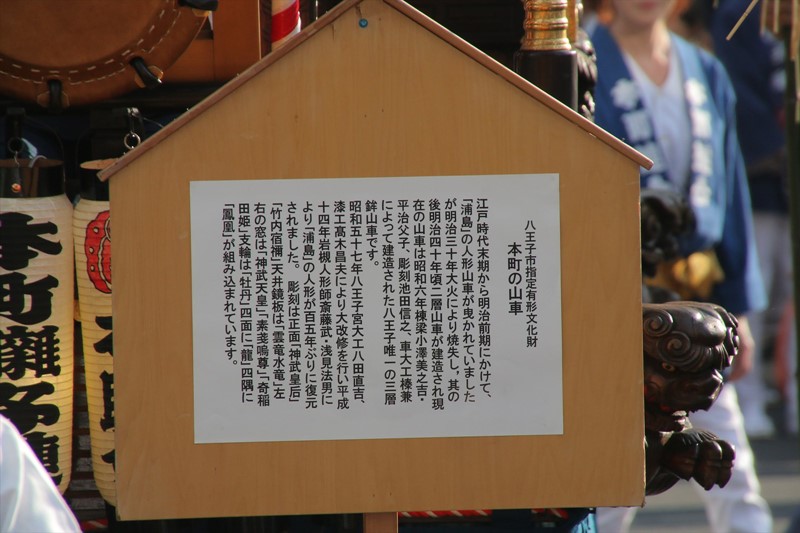 八王子市指定有形文化財
本町の山車
江戸時代末期から明治前期にかけて、
「浦島」の人形山車が曳かれていました
が明治三十年大火により焼失し、其の
後明治四十年頃二層山車が建造され現
在の山車は昭和六年棟梁小澤美之吉・
平治父子、彫刻池田信之、車大工榛兼
によって建造された八王子唯一の三層
鉾山車です。
昭和五十七年八王子宮大工八田直吉、
漆工髙木昌夫により大改修を行い平成
十四年岩槻人形師斎藤武・浅見法男に
より「浦島」の人形が百五年ぶりに復元
されました。彫刻は正面「神武皇后」
「竹内宿禰」天井鏡板は「雲竜水竜」左
右の窓は「神武天皇」「素戔嗚尊」「奇稲
田姫」支輪は「牡丹」四面に「龍」四隅に
「鳳凰」が組み込まれています。
本町囃子連